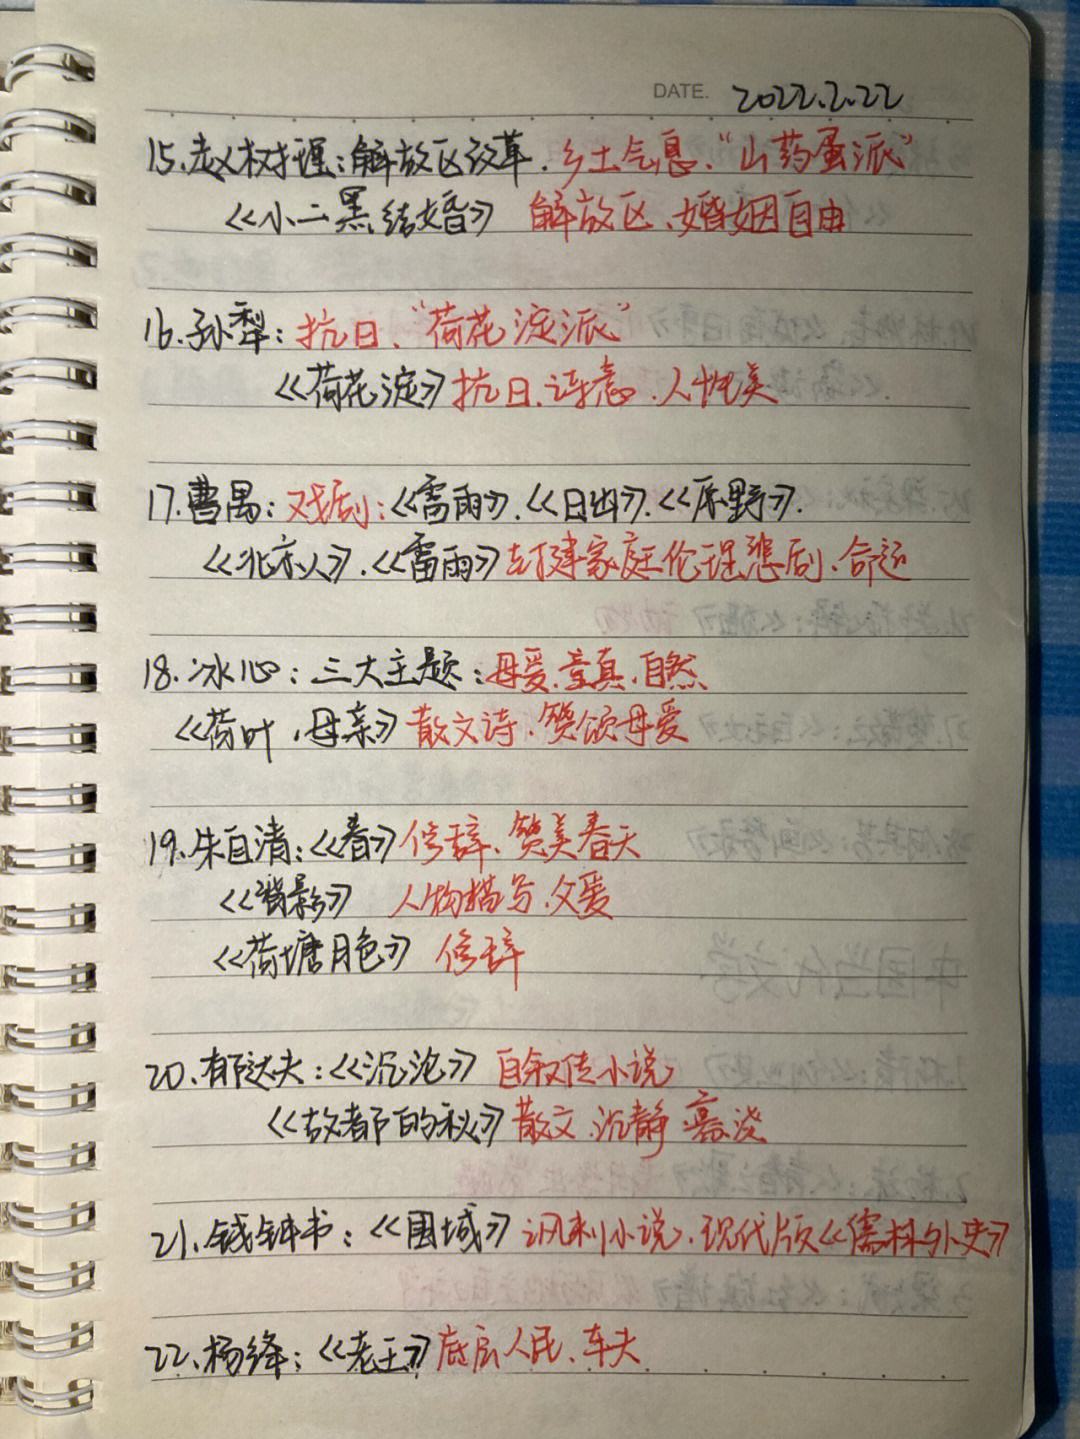 DATE. 2022.2.22
15.赵树理:解放区改革.乡土气息."山药蛋派"
《小二黑结婚》 解放区、婚姻自由
16.孙犁:抗日、"荷花淀派"
《荷花淀》抗日.诗意.人性美
17.曹禺:戏剧:《雷雨》.《日出》.《原野》.
《北京人》.《雷雨》封建家庭伦理悲剧.命运
18.冰心:三大主题:母爱.童真.自然
《荷叶.母亲》散文诗.赞颂母爱
19.朱自清:《春》修辞.赞美春天
《背影》 人物描写.父爱
《荷塘月色》 修辞
20.郁达夫:《沉沦》 自叙传小说
《故都的秋》散文.沉静.寡淡
21.钱钟书:《围城》讽刺小说.现代版《儒林外史》
22.杨绛:《老王》底层人民、车夫